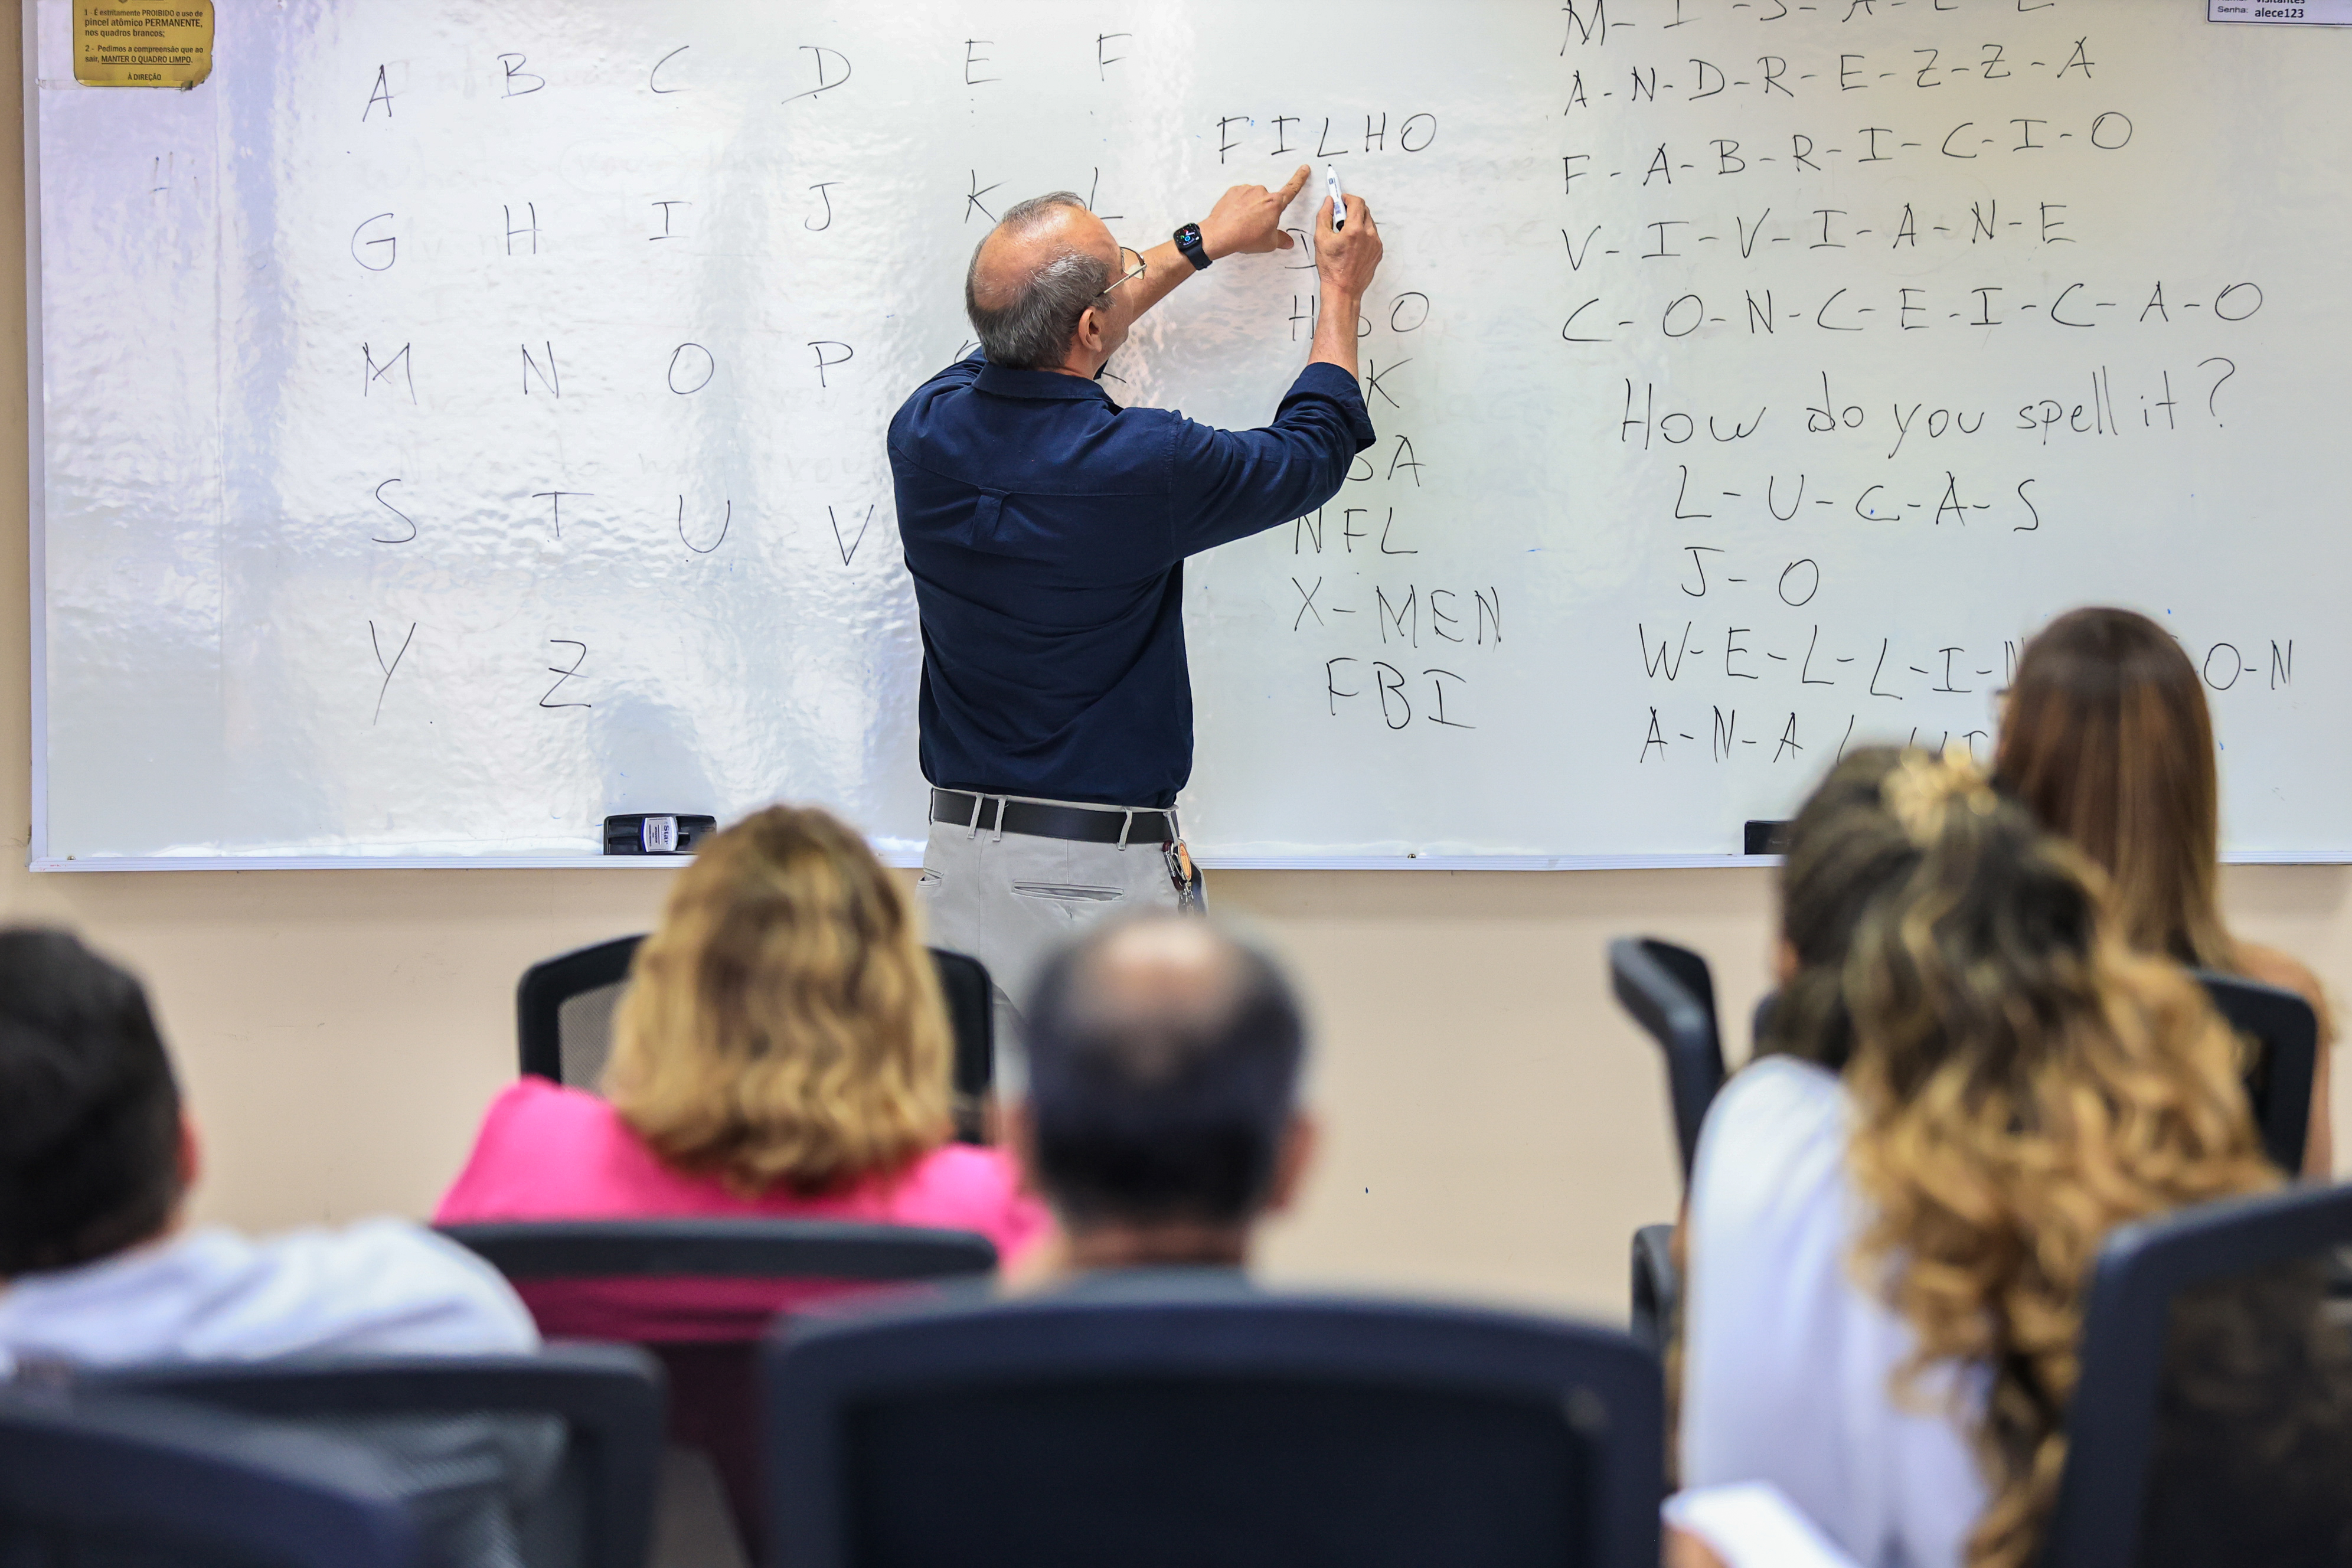 1 - É estritamente PROIBIDO o uso de
pincel atômico PERMANENTE,
nos quadros brancos;
2 - Pedimos a compreensão que ao
sair, MANTER O QUADRO LIMPO.
À DIREÇÃO
A B C D E F
G H I J K L
M N O P
S T U V
Y Z
FILHO
NFL
X-MEN
FBI
A-N-D-R-E-Z-Z-A
F-A-B-R-I-C-I-O
V-I-V-I-A-N-E
C-O-N-C-E-I-C-A-O
How do you spell it?
L-U-C-A-S
J-O
W-E-L-L-I-N O-N
A-N-A
Senha: alece123